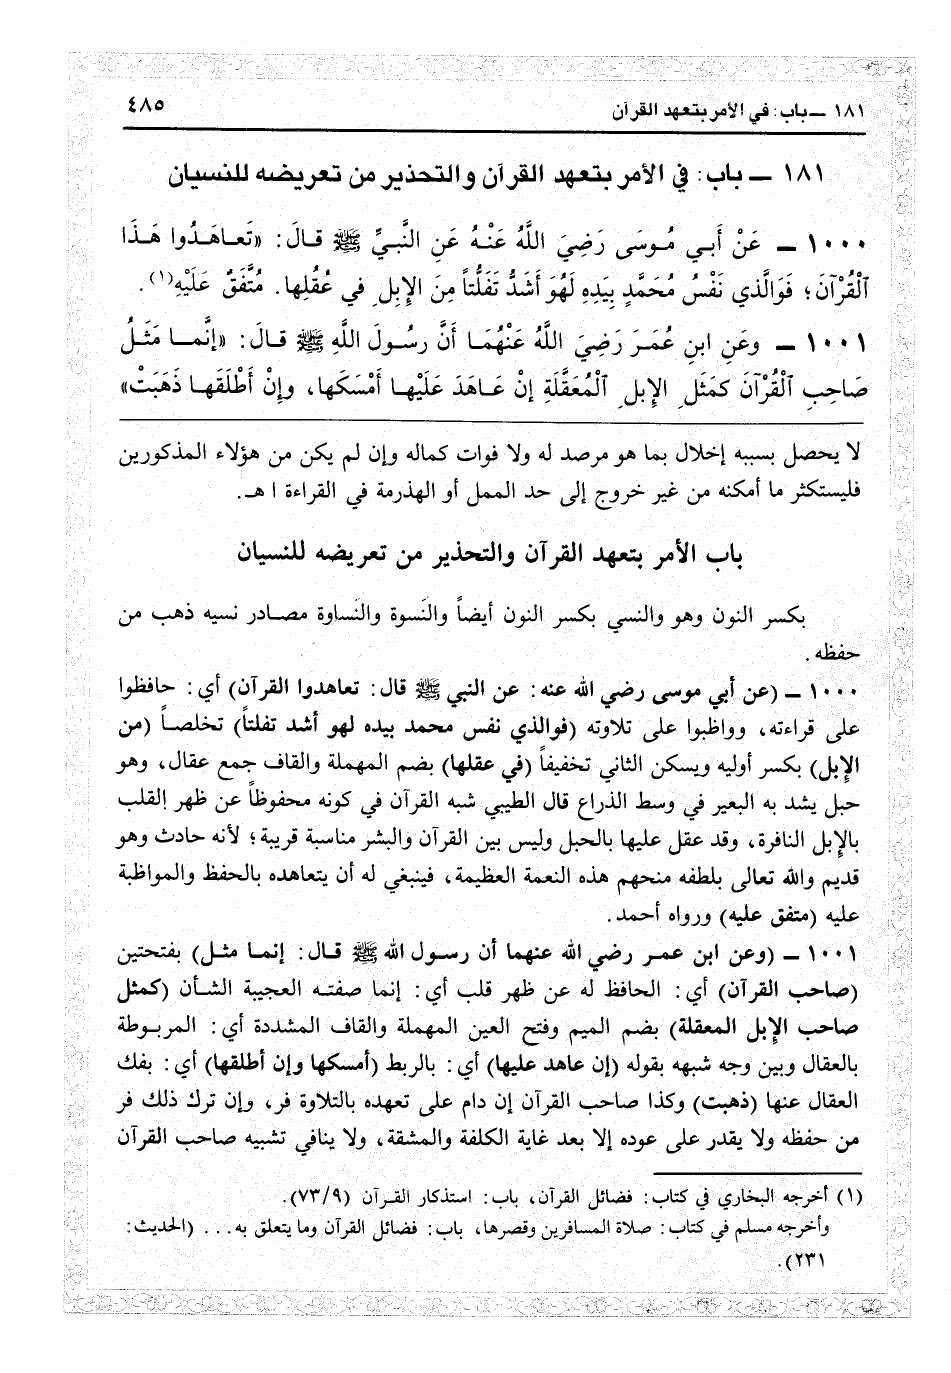 ١٨١ ـ باب: في الأمر بتعهد القرآن
٤٨٥
١٨١ ـ باب: في الأمر بتعهد القرآن والتحذير من تعريضه للنسيان
١٠٠٠ ـ عَنْ أَبي مُوسَى رَضِيَ اللَّهُ عَنْهُ عَنِ النَّبيِّ ﷺ قالَ: «تَعاهَدُوا هَذَا
ٱلْقُرْآنَ؛ فَوَالَّذي نَفْسُ مُحَمَّدٍ بِيَدِهِ لَهُوَ أَشَدُّ تَفَلُّتاً مِنَ الإِبِلِ في عُقُلِها. مُتَّفَقٌ عَلَيْهِ(١).
١٠٠١ ـ وعَنِ ابنِ عُمَرَ رَضِيَ اللَّهُ عَنْهُمَا أَنَّ رسُولَ اللَّهِ ﷺ قالَ: «إنَّما مَثَلُ
صَاحِبِ ٱلْقُرْآنَ كمَثَلِ الإبلِ ٱلْمُعَقَّلَةِ إنْ عَاهَدَ عَلَيْها أَمْسَكَها، وإنْ أَطْلَقَها ذَهَبَتْ»
لا يحصل بسببه إخلال بما هو مرصد له ولا فوات كماله وإن لم يكن من هؤلاء المذكورين
فليستكثر ما أمكنه من غير خروج إلى حد الممل أو الهذرمة في القراءة ا هـ.
باب الأمر بتعهد القرآن والتحذير من تعريضه للنسيان
بكسر النون وهو والنسي بكسر النون أيضاً والنَسوة والنَساوة مصادر نسيه ذهب من
حفظه.
١٠٠٠ ـ (عن أبي موسى رضي الله عنه: عن النبي ﷺ قال: تعاهدوا القرآن) أي: حافظوا
على قراءته، وواظبوا على تلاوته (فوالذي نفس محمد بيده لهو أشد تفلتاً) تخلصاً (من
الإبل) بكسر أوليه ويسكن الثاني تخفيفاً (في عقلها) بضم المهملة والقاف جمع عقال، وهو
حبل يشد به البعير في وسط الذراع قال الطيبي شبه القرآن في كونه محفوظاً عن ظهر القلب
بالإبل النافرة، وقد عقل عليها بالحبل وليس بين القرآن والبشر مناسبة قريبة؛ لأنه حادث وهو
قديم والله تعالى بلطفه منحهم هذه النعمة العظيمة، فينبغي له أن يتعاهده بالحفظ والمواظبة
عليه (متفق عليه) ورواه أحمد.
١٠٠١ ـ (وعن ابن عمر رضي الله عنهما أن رسول الله ﷺ قال: إنما مثل) بفتحتين
(صاحب القرآن) أي: الحافظ له عن ظهر قلب أي: إنما صفته العجيبة الشأن (كمثل
صاحب الإبل المعقلة) بضم الميم وفتح العين المهملة والقاف المشددة أي: المربوطة
بالعقال وبين وجه شبهه بقوله (إن عاهد عليها) أي: بالربط (أمسكها وإن أطلقها) أي: بفك
العقال عنها (ذهبت) وكذا صاحب القرآن إن دام على تعهده بالتلاوة فر، وإن ترك ذلك فر
من حفظه ولا يقدر على عوده إلا بعد غاية الكلفة والمشقة، ولا ينافي تشبيه صاحب القرآن
(١) أخرجه البخاري في كتاب: فضائل القرآن، باب: استذكار القرآن (٧٣/٩).
وأخرجه مسلم في كتاب: صلاة المسافرين وقصرها، باب: فضائل القرآن وما يتعلق به... (الحديث:
٢٣١).